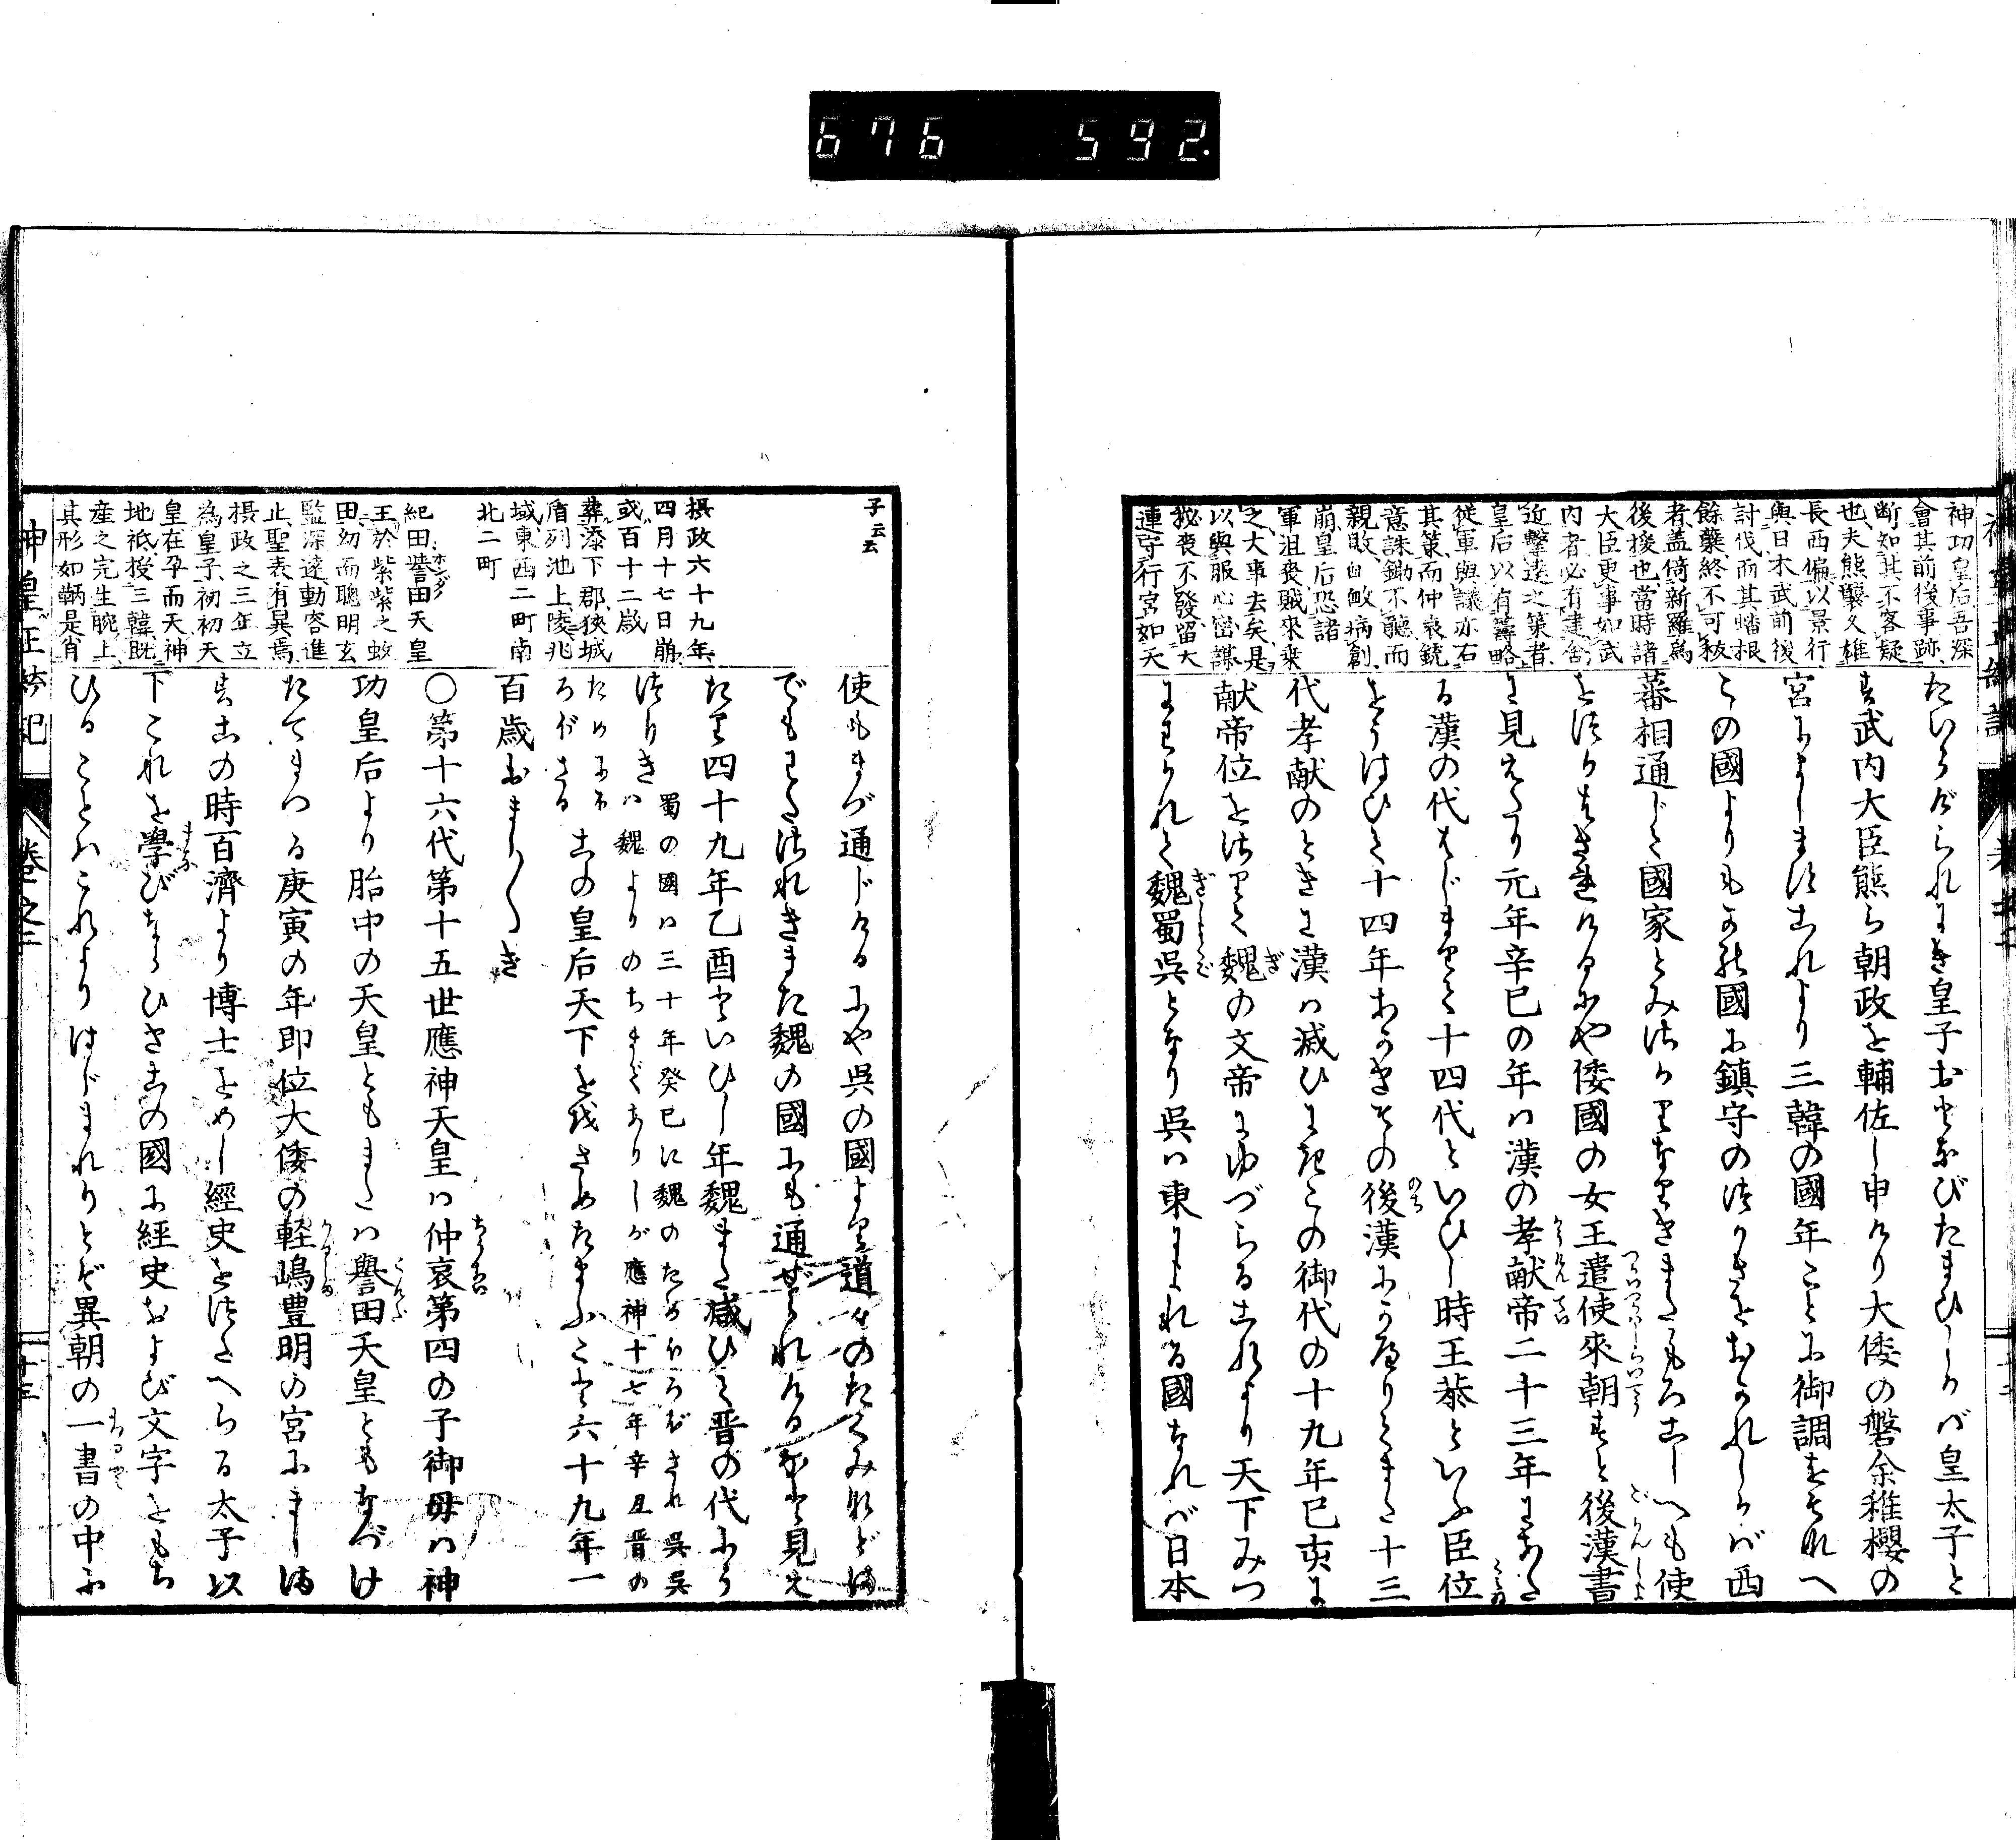 676 592.
神功皇后吾深
會其前後事跡
断知其不容疑
也夫熊襲久雄
長西偏以景行
與日本武前後
討伐而其蟠根
餘蘖終不可拔
者蓋倚新羅為
後援也當時諸
大臣更事如武
内者必有建舍
近撃遠之策者
皇后以有籌略
從軍與議亦右
其策而仲哀鋭
意誅鋤不聽而
親敗自敵病創
崩皇后恐諸
軍沮喪賊來乗
之大事去矣是
以與服心密謀
秘喪不發留大
連守行宮如天
たいらげられにき皇子おとなびたまひしかバ皇太子と
す武内大臣熊ら朝政を輔佐し申けり大倭の磐余稚櫻の
宮にましますこれより三韓の國年ごとに御調をそなへ
この國よりもかの國に鎮守のつかさをおかれしかバ西
蕃相通じて國家とみつかりなりきまたもろこしへも使
をつかはされけるにや倭國の女王遣使來朝すと後漢書
に見えたり元年辛巳の年ハ漢の孝献帝二十三年にあた
る漢の代はじまりて十四代といひし時王莽といふ臣位
をうばひて十四年ありきその後漢にかへりてまた十三
代孝献のときに漢ハ滅びにきこの御代の十九年己亥に
献帝位をさりて魏の文帝にゆづらるこれより天下みつ
にわかれて魏蜀呉となり呉ハ東によれる國なれバ日本
子云云
摂政六十九年
四月十七日崩
或百十二歳
葬添下郡狭城
盾列池上陵兆
域東西二町南
北二町
紀田譽田天皇
王於紫紫之蚊
田幼而聰明玄
監深遠動容進
止聖表有異焉
摂政之三年立
為皇子初初天
皇在孕而天神
地祇授三韓既
産之完生腕上
其形如鞆是肖
使もまづ通じけるにや呉の國より道々のたくみなどま
でもわたされきまた魏の國にも通ぜられけるかと見え
たり四十九年乙酉といひし年魏また滅びて晋の代にう
つりき蜀の國ハ三十年癸巳に魏のためにほろぼされ呉
ハ魏よりのちまでありしが應神十七年辛丑晋の
ためにほろぼさる
この皇后天下をおさめたまふこと六十九年一
百歳おましましき
〇第十六代第十五世應神天皇ハ仲哀第四の子御母ハ神
功皇后より胎中の天皇ともまたハ譽田天皇ともなづけ
たてまつる庚寅の年即位大倭の軽嶋豊明の宮にましま
すこの時百濟より博士をめし經史をつたへらる太子以
下これを學びならひきこの國に経史および文字をもち
ひることハこれよりはじまれりとぞ異朝の一書の中に
神皇正統記 巻之二 十三